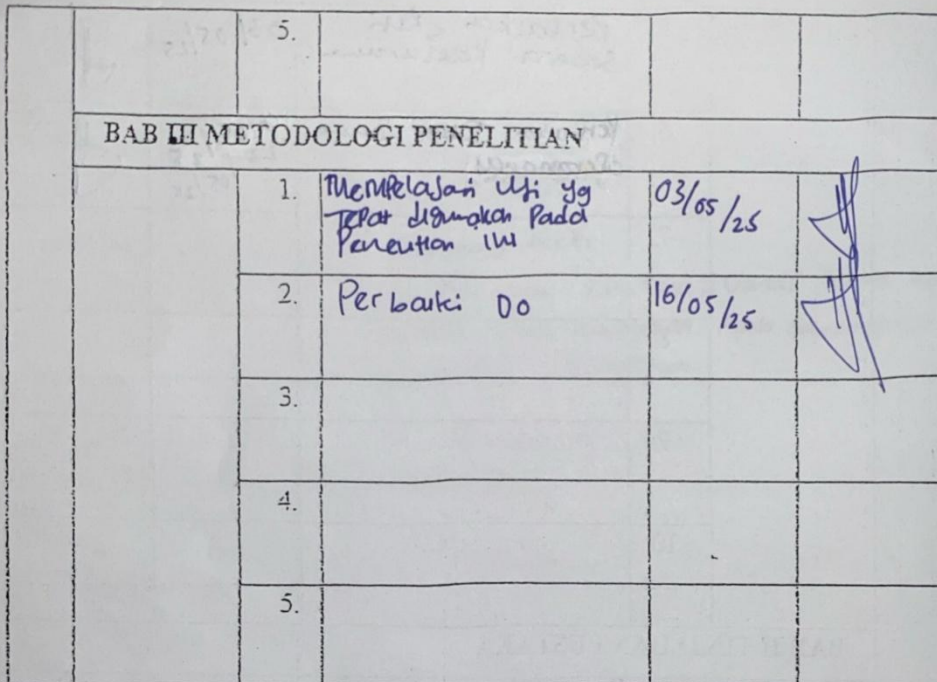 5.
BAB III METODOLOGI PENELITIAN
1. Mempelajari Uji yg
Tepat digunakan Pada
Penelitian ini
03/05/25
2. Perbaiki DO
16/05/25
3.
4.
5.